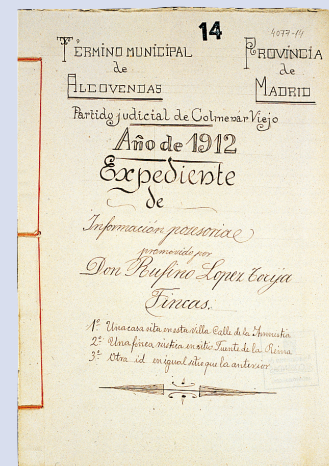 14
4077-14
TÉRMINO MUNICIPAL
de
ALCOVENDAS
PROVINCIA
de
MADRID
Partido judicial de Colmenar Viejo
Año de 1912
Expediente
de
Información posesoria
promovido por
Don Rufino Lopez
Fincas.
1ª Una casa sita en esta villa Calle de la Amnistia
2ª Una finca rústica en sitio Fuente de la Reina
3ª Otra id en igual sitio que la anterior